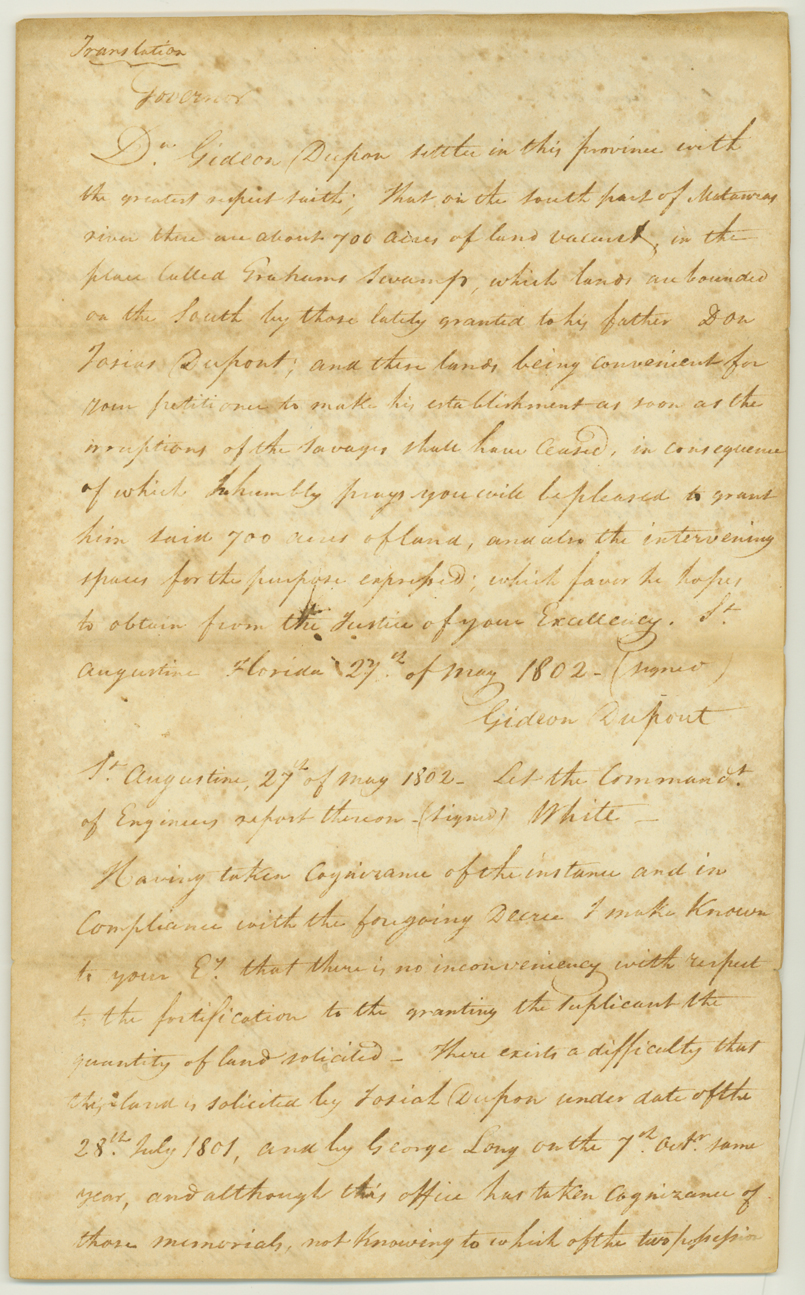 Translation
Governor
Dn. Gideon Dupon settler in this province with
the greatest respect saith; That on the south part of Matanzas
river there are about 700 acres of land vacant, in the
place called Grahams Swamp, which lands are bounded
on the South by those lately granted to his father Don
Josias Dupont; and these lands being convenient for
your petitioner to make his establishment as soon as the
irruptions of the savages shall have ceased, in consequence
of which humbly prays you will be pleased to grant
him said 700 acres of land, and also the intervening
spaces for the purpose expressed; which favor he hopes
to obtain from the Justice of your Excellency. St.
Augustine Florida 27th of May 1802 - (signed)
Gideon Dupont
St. Augustine, 27th of May 1802 - Let the Commandt.
of Engineers report thereon - (signed) White -
Having taken Cognizance of the instance and in
Compliance with the foregoing Decree I make Known
to your Ey. that there is no inconveniency with respect
to the fortification to the granting the Suplicant the
quantity of land solicited - There exists a difficulty that
this land is solicited by Josiah Dupon under date of the
28th. July 1801, and by George Long on the 7th. Octr. same
year, and although this office has taken Cognizance of
those memorials, not Knowing to which of the two possession